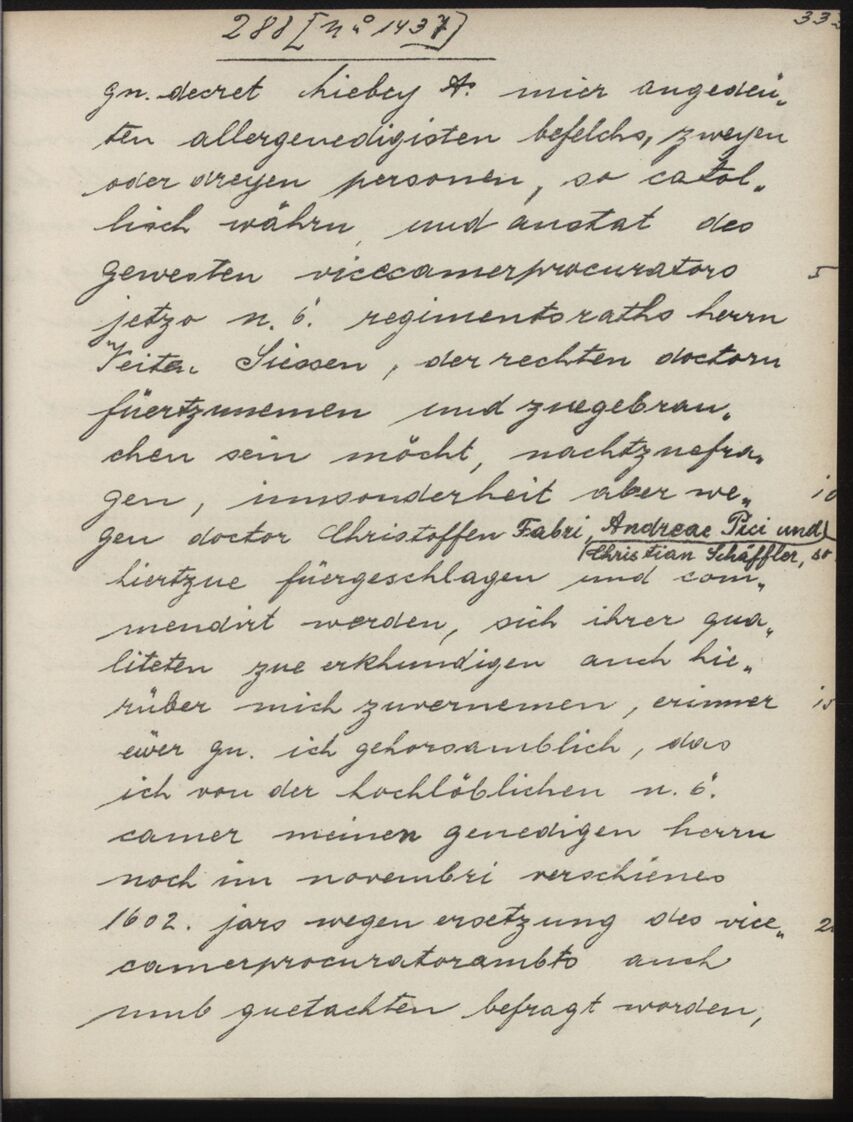 288 [nº 1437] 333
gn. decret hiebey A. mier angedeü„
ten allergenedigisten befelchs, zweyen
oder dreyen personen, so catol„
lisch währn, und anstat des
gewesten vicecamerprocurators 5
jetzo n. ö. regimentsraths herrn
Veiten Siessen, der rechten doctorn
füertzunemen und zuegebrau„
chen sein möcht, nachtzuefra„
gen, innsonderheit aber we„ 10
gen doctor Christoffen Fabri, Andreae Pici und
Christian Schäffler, so
hiertzue füergeschlagen und com„
mendirt werden, sich ihrer qua„
liteten zue erkhundigen auch hie„
rüber mich zuvernemen, erinner 15
eüer gn. ich gehorsamblich, das
ich von der hochlöblichen n. ö.
camer meinen genedigen herrn
noch im novembri verschienes
1602. jars wegen ersetzung des vice„ 20
camerprocuratorambts auch
umb guetachten befragt worden,